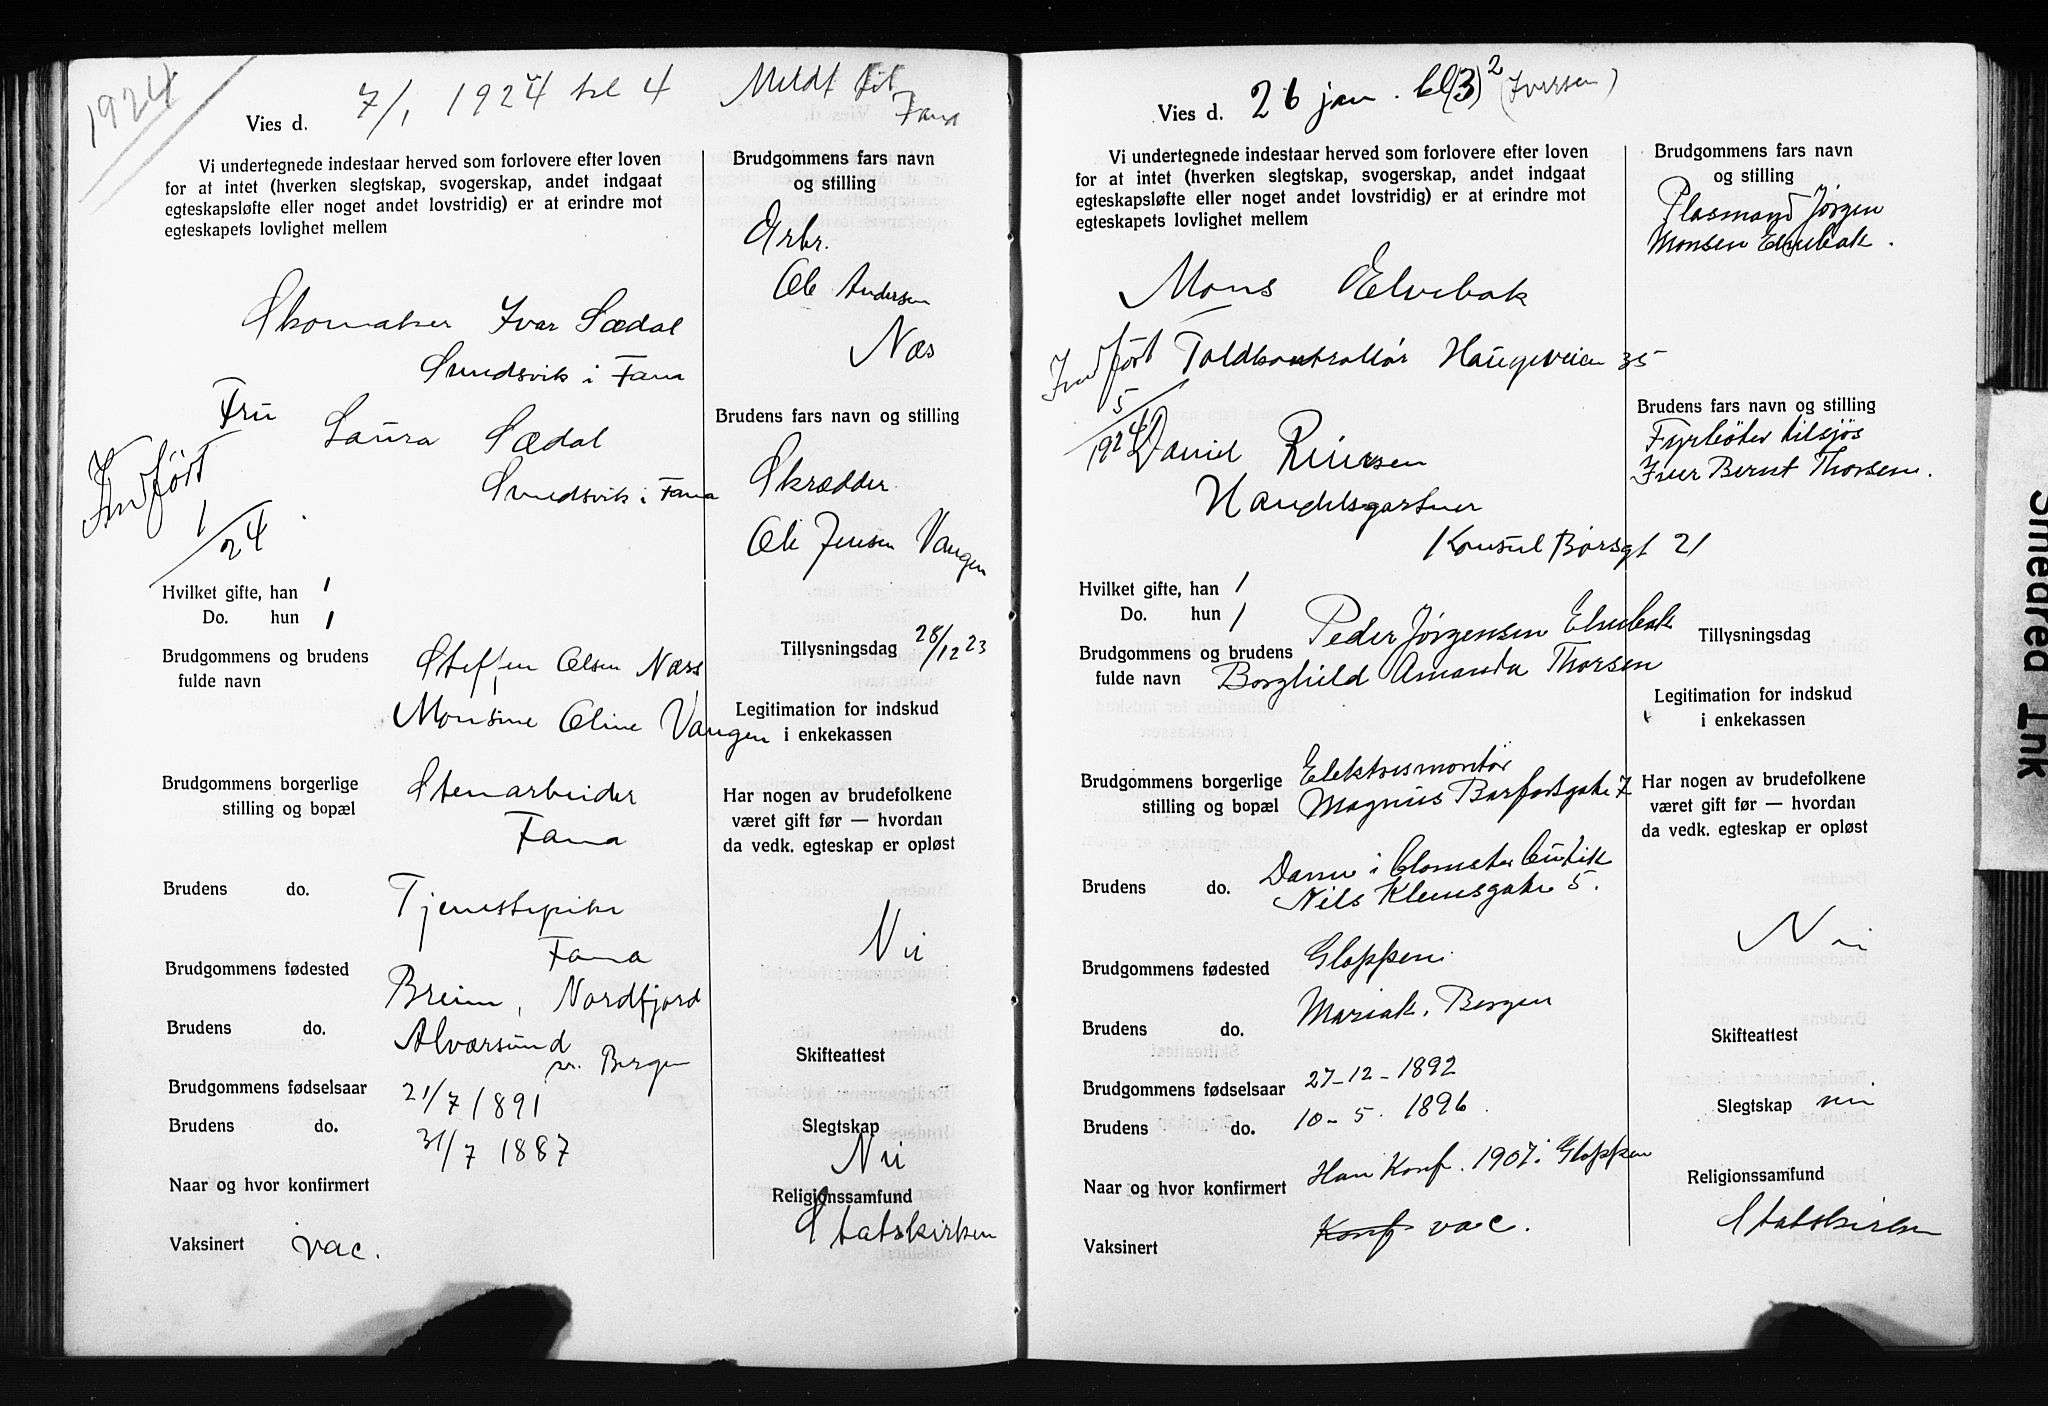 1924
Vies d. 7/1 1924 kl 4 Meldt til
Fana
Vi undertegnede indestaar herved som forlovere efter loven
for at intet (hverken slegtskap, svogerskap, andet indgaat
egteskapsløfte eller noget andet lovstridig) er at erindre mot
egteskapets lovlighet mellem
Brudgommens fars navn
og stilling
Arbr.
Ole Andersen
Næs
Skomaker Ivar Sædal
Smedsvik i Fana
Fru Laura Sædal
Smedsvik i Fana
Indført
1/24
Brudens fars navn og stilling
Skrædder
Ole Jensen Vangen
Hvilket gifte, han 1
Do. hun 1
Tillysningsdag 28/12 23
Brudgommens og brudens
fulde navn
Steffen Olsen Næss
Monsine Oline Vangen
Legitimation for indskud
i enkekassen
Brudgommens borgerlige
stilling og bopæl
Stenarbeider
Fana
Har nogen av brudefolkene
været gift før — hvordan
da vedk. egteskap er opløst
Nei
Brudens do. Tjenestepike
Fana
Brudgommens fødested
Breim, Nordfjord
Brudens do. Alværsund
pr. Bergen
Skifteattest
Brudgommens fødselsaar 21/7 1891
Brudens do. 31/7 1887
Slegtskap
Nei
Naar og hvor konfirmert
Religionssamfund
Statskirken
Vaksinert vac.
Vies d. 26 jan. kl (3) 2 (Iversen)
Vi undertegnede indestaar herved som forlovere efter loven
for at intet (hverken slegtskap, svogerskap, andet indgaat
egteskapsløfte eller noget andet lovstridig) er at erindre mot
egteskapets lovlighet mellem
Brudgommens fars navn
og stilling
Plasmand Jørgen
Monsen Elvebak.
Mons Elvebak
Indført Toldkontrollør Haugeveien 35
5/1924
David
Handelsgartner
Konsul Børsgt 21
Brudens fars navn og stilling
Fyrbøter tilsjøs
Iver Bernt Thorsen.
Hvilket gifte, han 1
Do. hun 1
Tillysningsdag
Brudgommens og brudens
fulde navn
Peder Jørgensen Elvebak
Borghild Amanda Thorsen
Legitimation for indskud
i enkekassen
Brudgommens borgerlige
stilling og bopæl
Elektrismontør
Magnus Barfotsgate 7
Har nogen av brudefolkene
været gift før — hvordan
da vedk. egteskap er opløst
Nei
Brudens do. Dame i blomsterbutik
Nils Klemsgate 5.
Brudgommens fødested Gloppen.
Brudens do. Mariak. Bergen
Skifteattest
Brudgommens fødselsaar 27-12-1892
Brudens do. 10-5. 1896.
Slegtskap nei
Naar og hvor konfirmert Han Konf. 1907 i Gloppen
Religionssamfund
Statskirken
Vaksinert Konf vac.
Smedred Ink